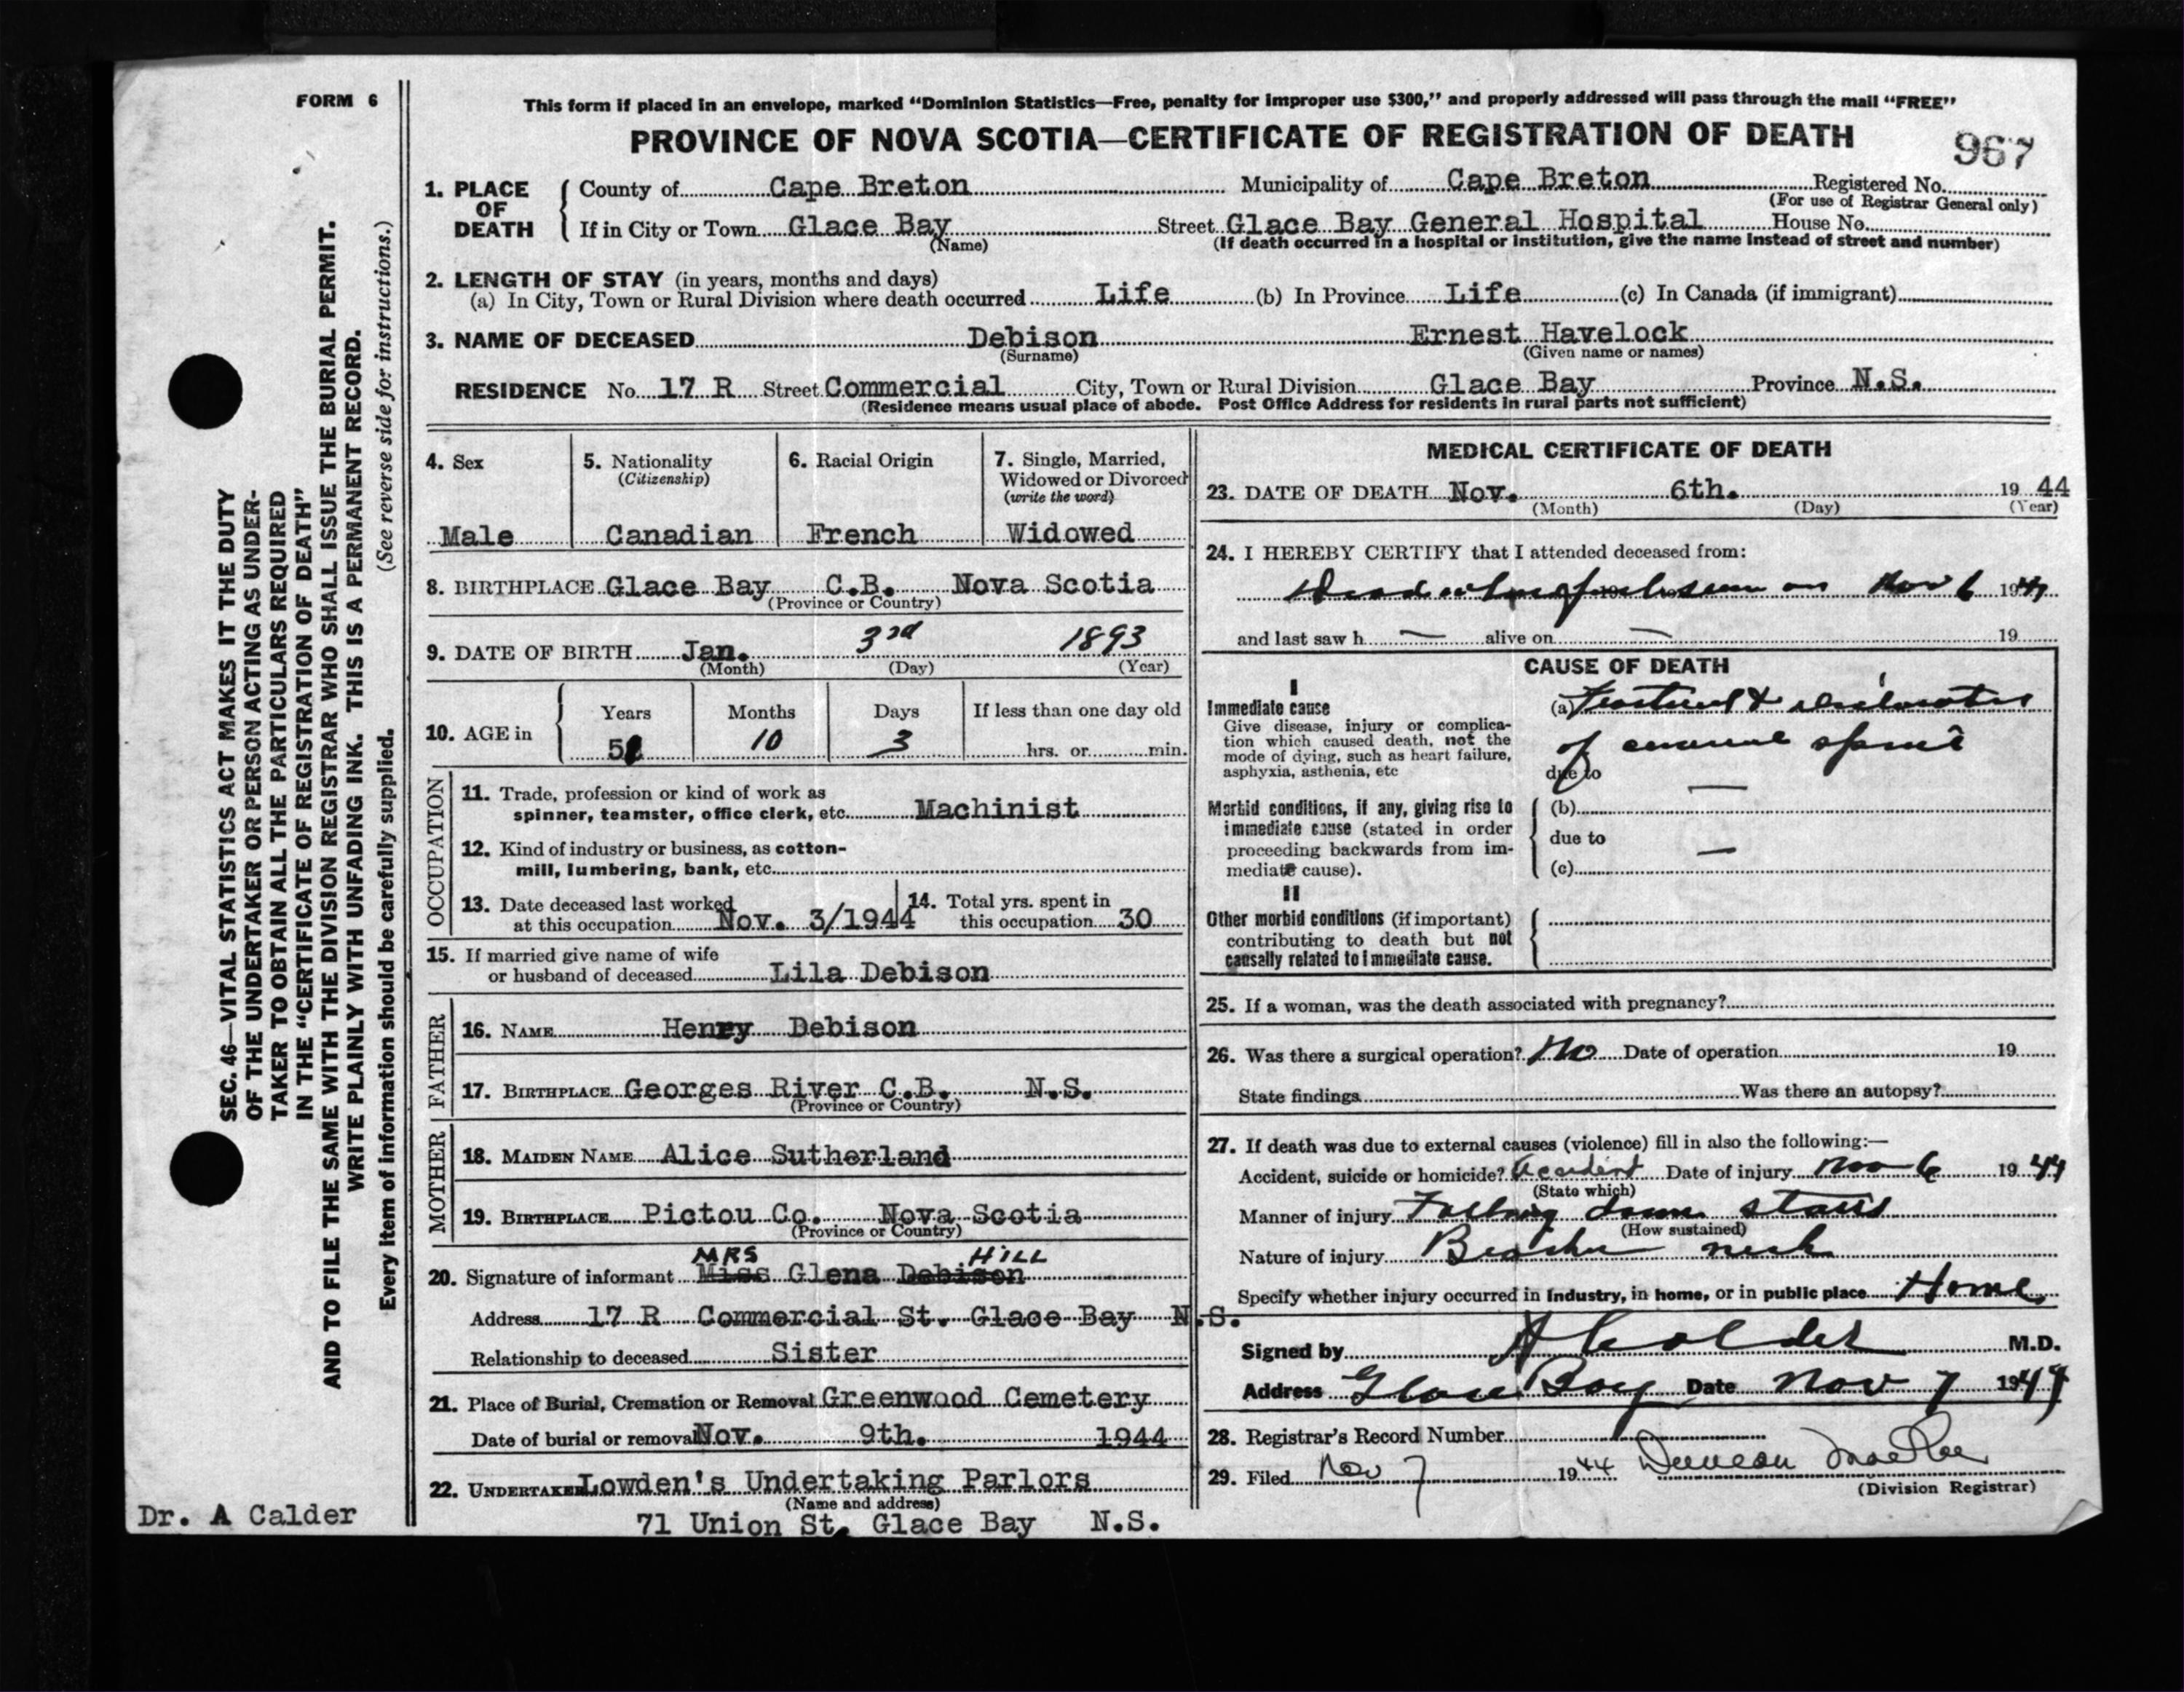 FORM 6
This form if placed in an envelope, marked “Dominion Statistics—Free, penalty for improper use $300,” and properly addressed will pass through the mail “FREE”
PROVINCE OF NOVA SCOTIA—CERTIFICATE OF REGISTRATION OF DEATH
967
1. PLACE OF DEATH
County of Cape Breton Municipality of Cape Breton Registered No.
(For use of Registrar General only)
If in City or Town Glace Bay Street Glace Bay General Hospital House No.
(Name) (If death occurred in a hospital or institution, give the name instead of street and number)
2. LENGTH OF STAY (in years, months and days)
(a) In City, Town or Rural Division where death occurred Life (b) In Province Life (c) In Canada (if immigrant)
3. NAME OF DECEASED Debison Ernest Havelock
(Surname) (Given name or names)
RESIDENCE No. 17 R Street Commercial City, Town or Rural Division Glace Bay Province N.S.
(Residence means usual place of abode. Post Office Address for residents in rural parts not sufficient)
4. Sex
Male
5. Nationality
(Citizenship)
Canadian
6. Racial Origin
French
7. Single, Married,
Widowed or Divorced
(write the word)
Widowed
8. BIRTHPLACE Glace Bay C.B. Nova Scotia
(Province or Country)
9. DATE OF BIRTH Jan. 3rd 1893
(Month) (Day) (Year)
10. AGE in
Years Months Days If less than one day old
51 10 3 hrs. or min.
OCCUPATION
11. Trade, profession or kind of work as
spinner, teamster, office clerk, etc. Machinist
12. Kind of industry or business, as cotton-
mill, lumbering, bank, etc.
13. Date deceased last worked
at this occupation Nov. 3/1944
14. Total yrs. spent in
this occupation 30
15. If married give name of wife
or husband of deceased Lila Debison
FATHER
16. NAME Henry Debison
17. BIRTHPLACE Georges River C.B. N.S.
(Province or Country)
MOTHER
18. MAIDEN NAME Alice Sutherland
19. BIRTHPLACE Pictou Co. Nova Scotia
(Province or Country)
MRS HILL
20. Signature of informant Miss Glena Debison
Address 17 R Commercial St. Glace Bay N.S.
Relationship to deceased Sister
21. Place of Burial, Cremation or Removal Greenwood Cemetery
Date of burial or removal Nov. 9th. 1944
22. UNDERTAKER Lowden's Undertaking Parlors
(Name and address)
71 Union St. Glace Bay N.S.
MEDICAL CERTIFICATE OF DEATH
23. DATE OF DEATH Nov. 6th. 19 44
(Month) (Day) (Year)
24. I HEREBY CERTIFY that I attended deceased from:
Dead when first seen on Nov 6 1944
and last saw h — alive on — 19
CAUSE OF DEATH
I
Immediate cause
Give disease, injury or complica-
tion which caused death, not the
mode of dying, such as heart failure,
asphyxia, asthenia, etc
(a) Fractured & dislocated
of cervical spine
due to
Morbid conditions, if any, giving rise to
immediate cause (stated in order
proceeding backwards from im-
mediate cause).
(b) —
due to
(c) —
II
Other morbid conditions (if important)
contributing to death but not
causally related to immediate cause.
25. If a woman, was the death associated with pregnancy?
26. Was there a surgical operation? No Date of operation 19
State findings Was there an autopsy?
27. If death was due to external causes (violence) fill in also the following:—
Accident, suicide or homicide? Accident Date of injury Nov 6 19 44
(State which)
Manner of injury Falling down stairs
(How sustained)
Nature of injury Broken neck
Specify whether injury occurred in industry, in home, or in public place Home
Signed by A Calder M.D.
Address Glace Bay Date Nov 7 1944
28. Registrar's Record Number
29. Filed Nov 7 1944 Duncan MacRae
(Division Registrar)
SEC. 46—VITAL STATISTICS ACT MAKES IT THE DUTY
OF THE UNDERTAKER OR PERSON ACTING AS UNDER-
TAKER TO OBTAIN ALL THE PARTICULARS REQUIRED
IN THE “CERTIFICATE OF REGISTRATION OF DEATH”
AND TO FILE THE SAME WITH THE DIVISION REGISTRAR WHO SHALL ISSUE THE BURIAL PERMIT.
WRITE PLAINLY WITH UNFADING INK. THIS IS A PERMANENT RECORD.
Every item of information should be carefully supplied. (See reverse side for instructions.)
Dr. A Calder